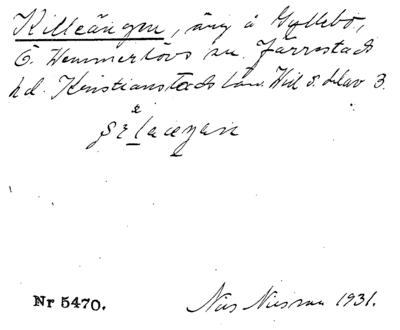 Killeängen, äng å Gyllebo,
Ö. Hemmerlövs sn. Järrestads
hd. Kristianstads län. Wid s. blav 3.
Nr 5470. Nils Nilsson 1931.